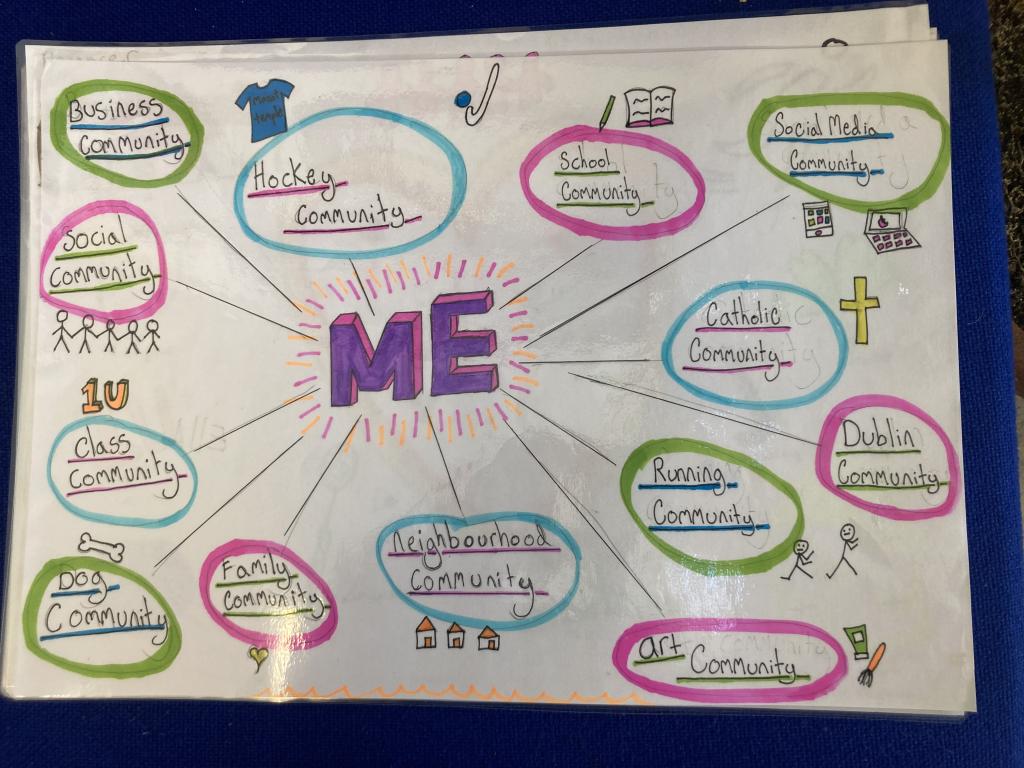 Business
Community
Mount
temple
Hockey
Community
School
Community
Social Media
Community
Social
Community
ME
Catholic
Community
1U
Class
Community
Dublin
Community
Running
Community
Dog
Community
Family
Community
Neighbourhood
Community
art
Community